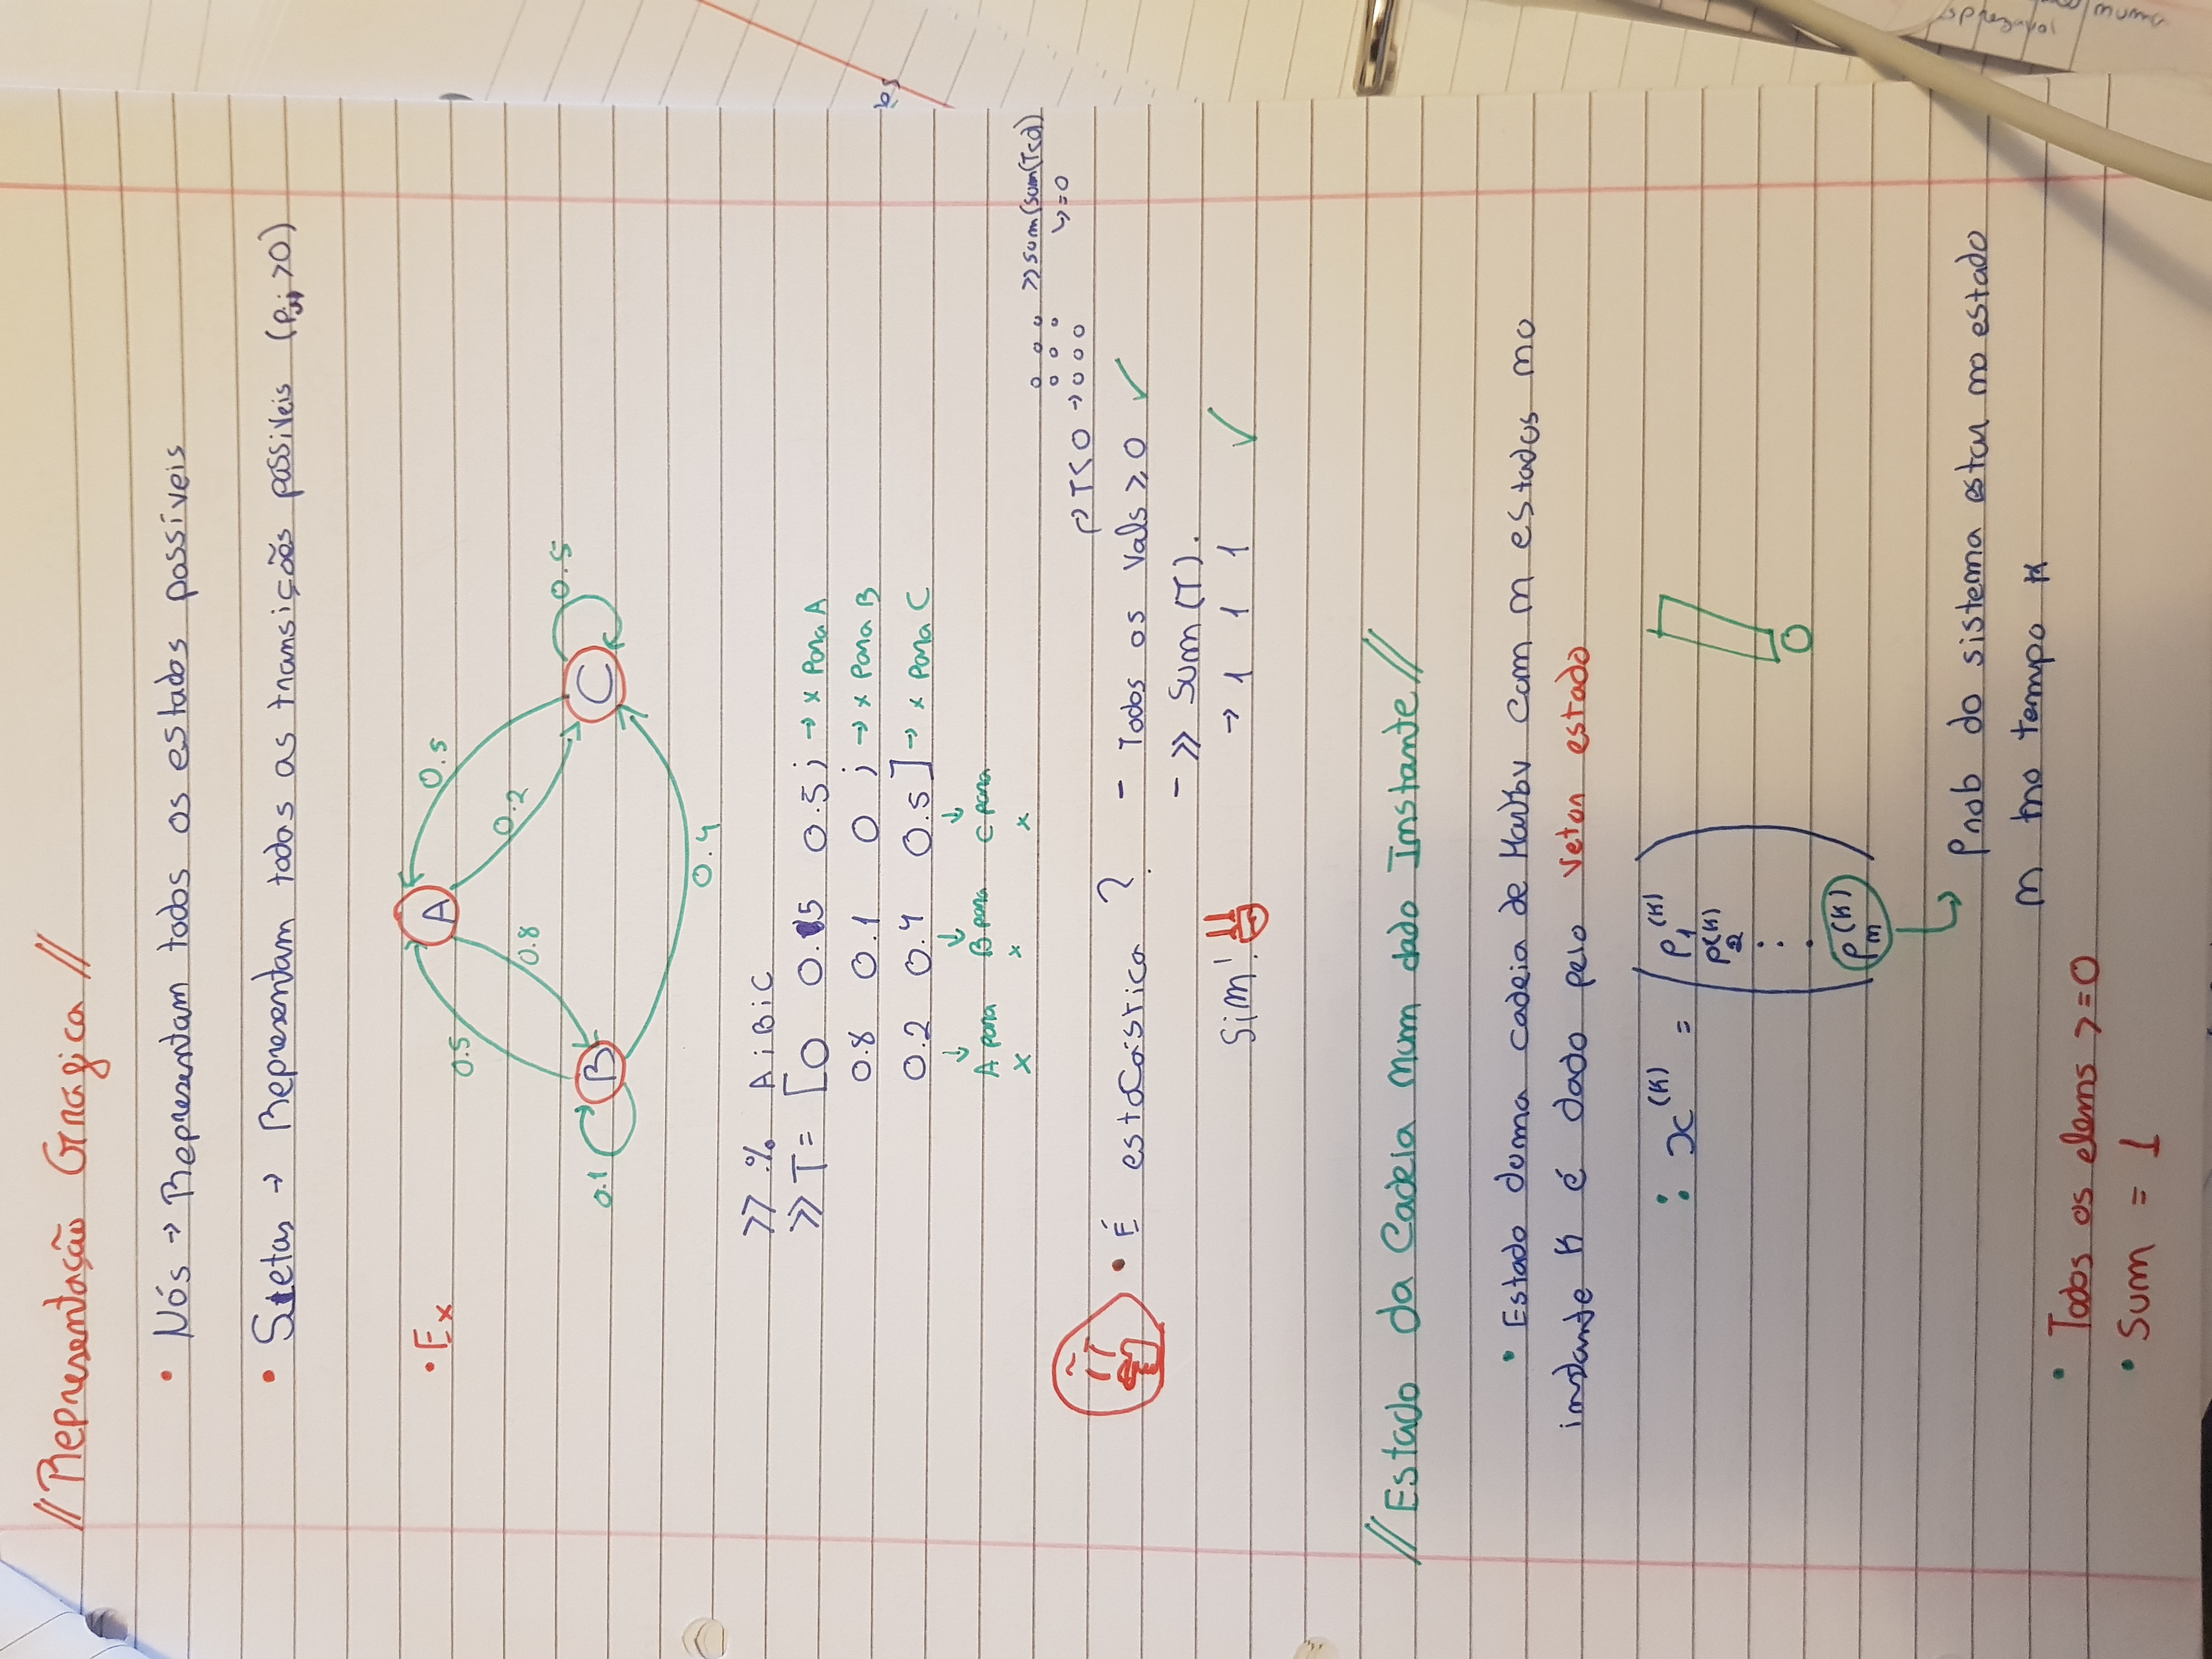 // Representação Gráfica //
• Nós → Representam todos os estados possíveis
• Setas → Representam todas as transições possiveis (Pji >0)
• Ex
A
0.5
0.5
0.8
0.2
0.1
B
C
0.5
0.4
>> % A i B i C
>> T = [0 0.5 0.5 ; → x para A
0.8 0.1 0 ; → x para B
0.2 0.4 0.5 ] → x para C
↓ ↓ ↓
A para B para C para
x x x
0 0 0 >> sum(sum(T<0))
0 0 0 ↳ =0
↱ T<0 → 0 0 0
• É estocástica ? - Todos os vals ≥ 0 ✓
- >> Sum (T).
Sim! → 1 1 1 ✓
// Estado da Cadeia num dado Instante //
• Estado duma cadeia de Markov com n estados no
instante K é dado pelo vetor estado
: x^(K) = P1^(K)
P2^(K)
⋮
Pn^(K)
↳ Prob do sistema estar no estado
n no tempo K
• Todos os elems >=0
• Sum = 1